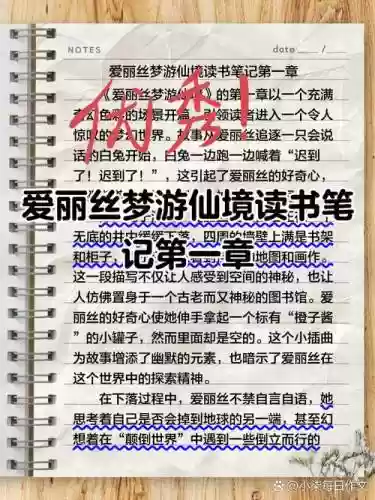 NOTES
date
爱丽丝梦游仙境读书笔记第一章
《爱丽丝梦游仙境》的第一章以一个充满
奇幻色彩的场景开篇，引领读者进入一个令人
惊叹的梦幻世界。故事从爱丽丝追逐一只会说
话的白兔开始，白兔一边跑一边喊着“迟到
了！迟到了！”，这引起了爱丽丝的好奇心，
优秀！
爱丽丝梦游仙境读书笔
记第一章
无底的井中缓缓下落，四周的墙壁上满是书架
和柜子，地图和画作。
这一段描写不仅让人感受到空间的神秘，也让
人仿佛置身于一个古老而又神秘的图书馆。爱
丽丝的好奇心使她伸手拿起一个标有“橙子酱
”的小罐子，然而里面却是空的。这个小插曲
为故事增添了幽默的元素，也暗示了爱丽丝在
这个世界中的探索精神。
在下落过程中，爱丽丝不禁自言自语，她
思考着自己是否会掉到地球的另一端，甚至幻
想着在“颠倒世界”中遇到一些倒立而行的
@小柒每日作文